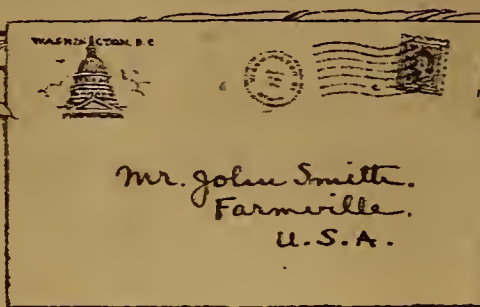 WASHINGTON, D.C
Mr. John Smith.
Farmville.
U.S.A.